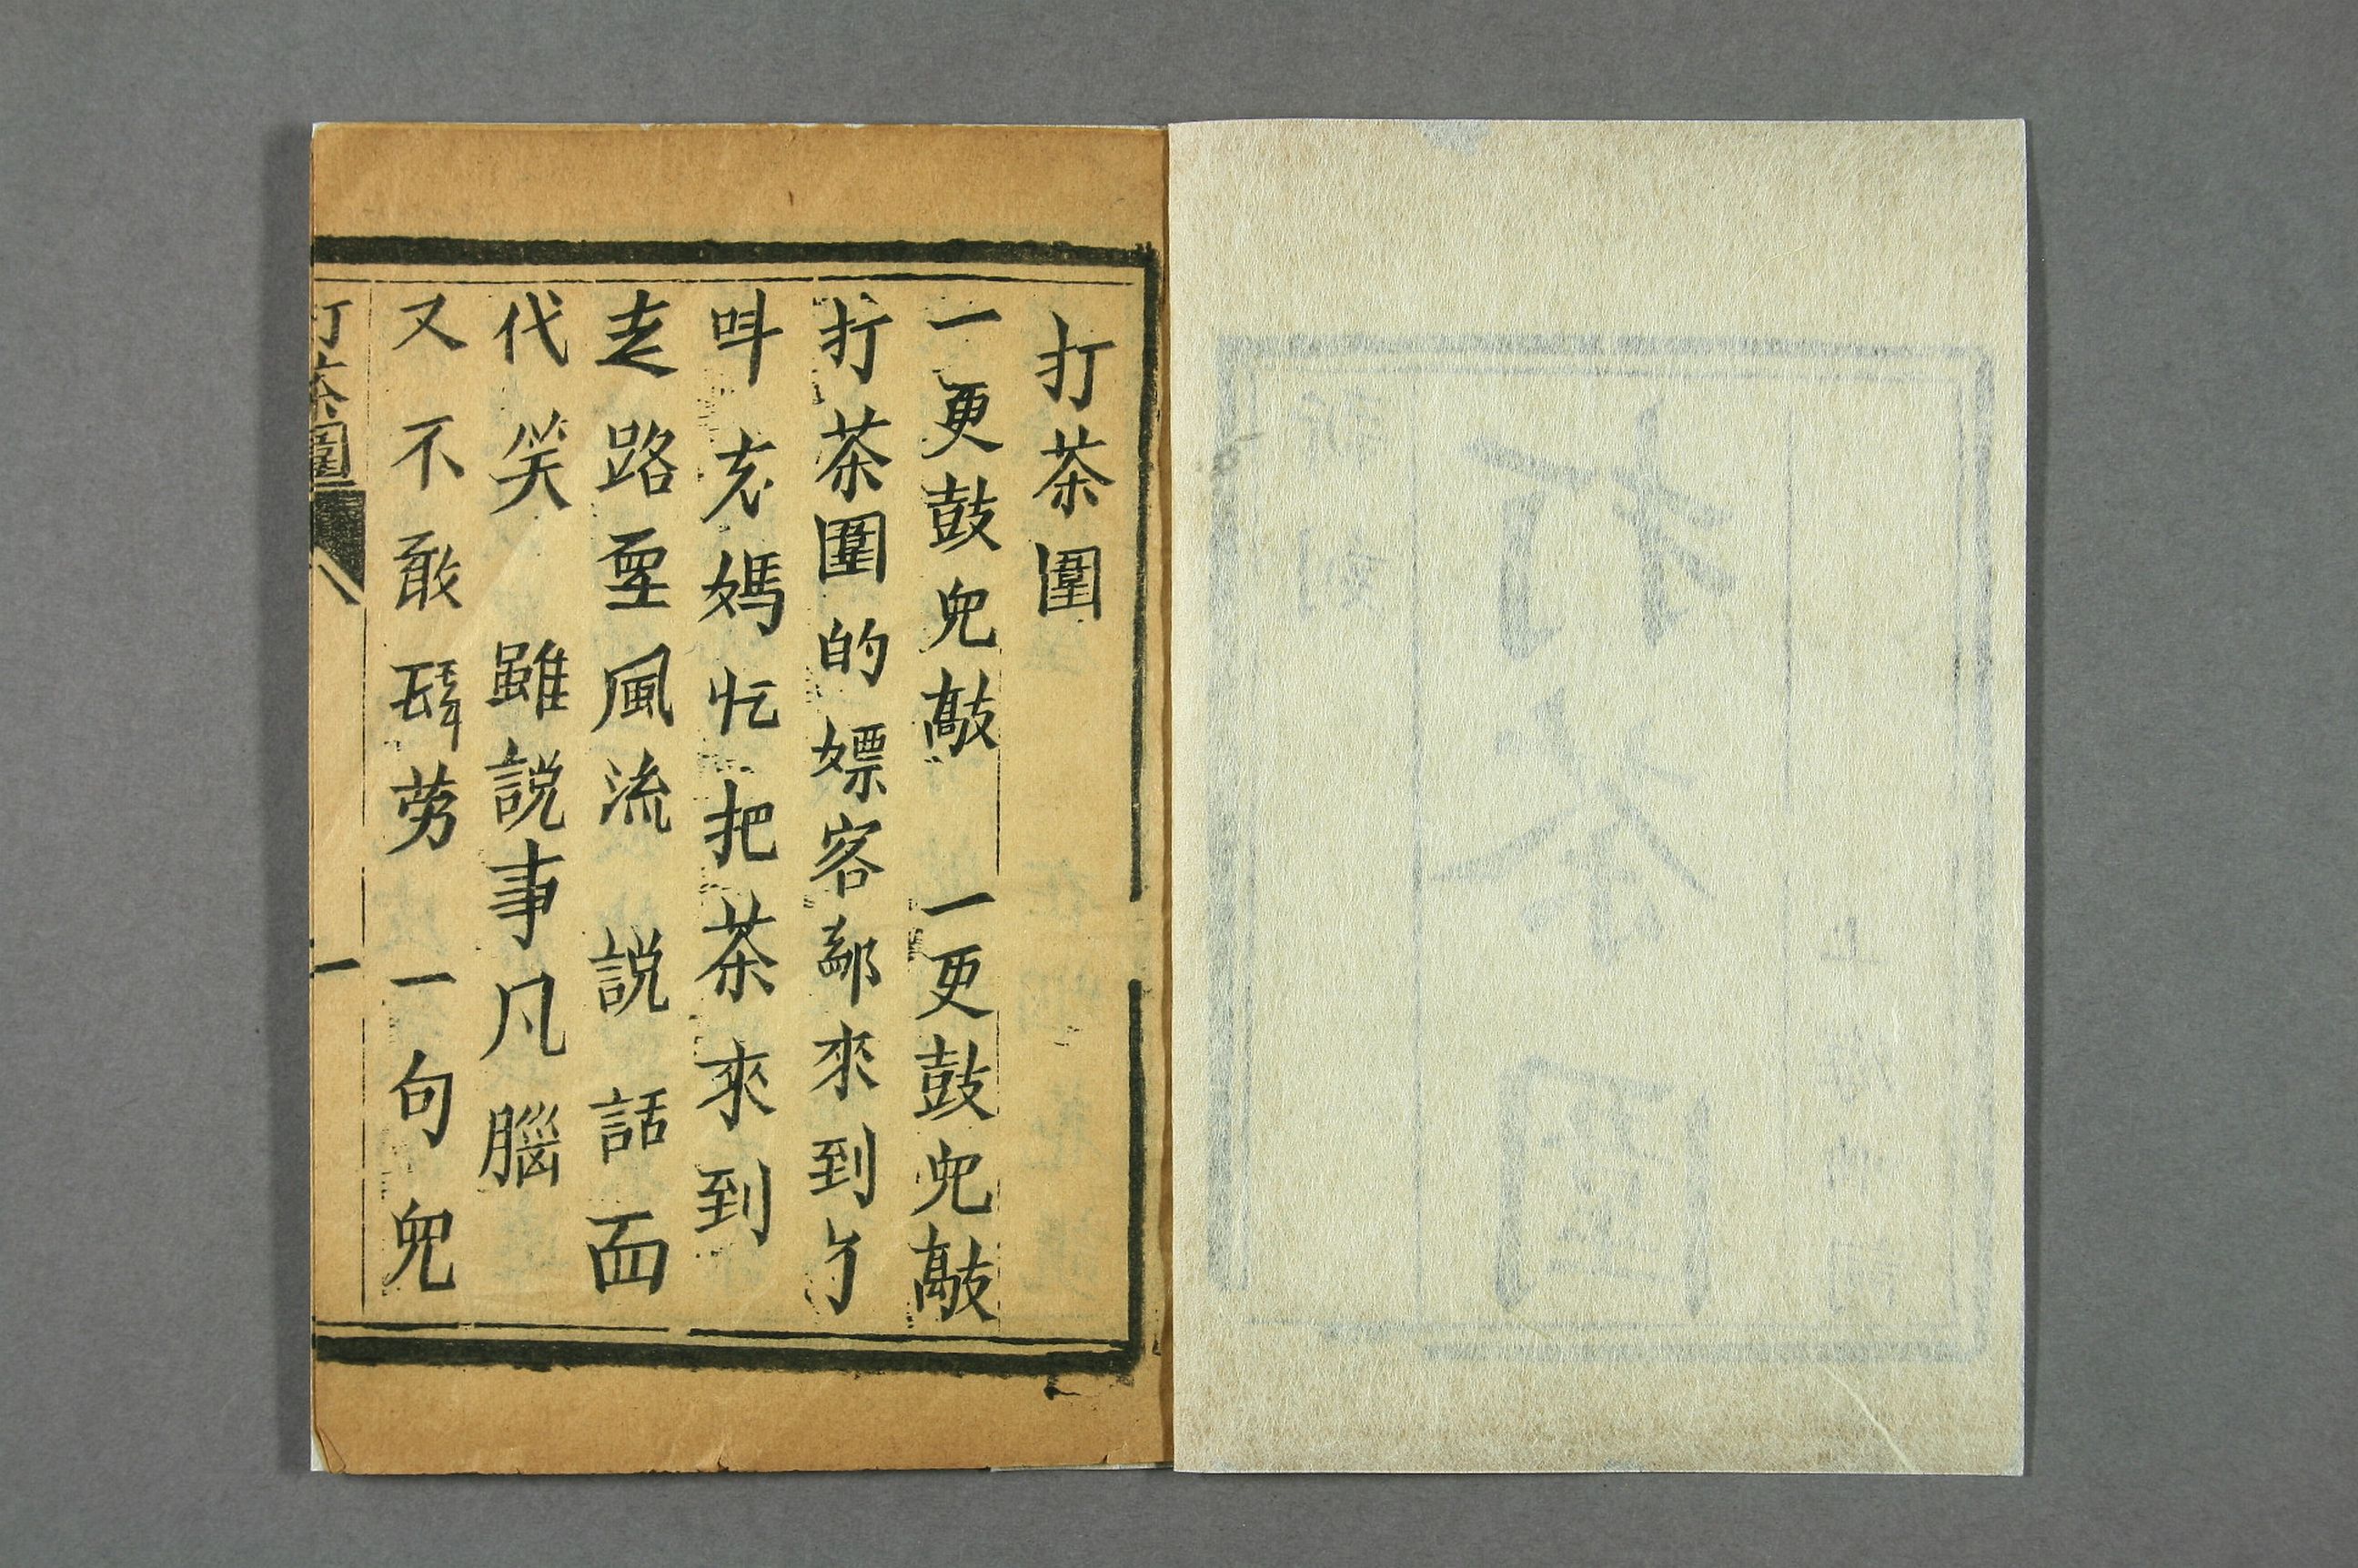 打茶圍
一更鼓児敲 一更鼓児敲
打茶圍的嫖客都來到
叫老媽忙把茶來到
走路要風流 說話面
代笑 雖說事凡腦
又不敢 一句兒
打茶圍
一
打茶圍
新刻